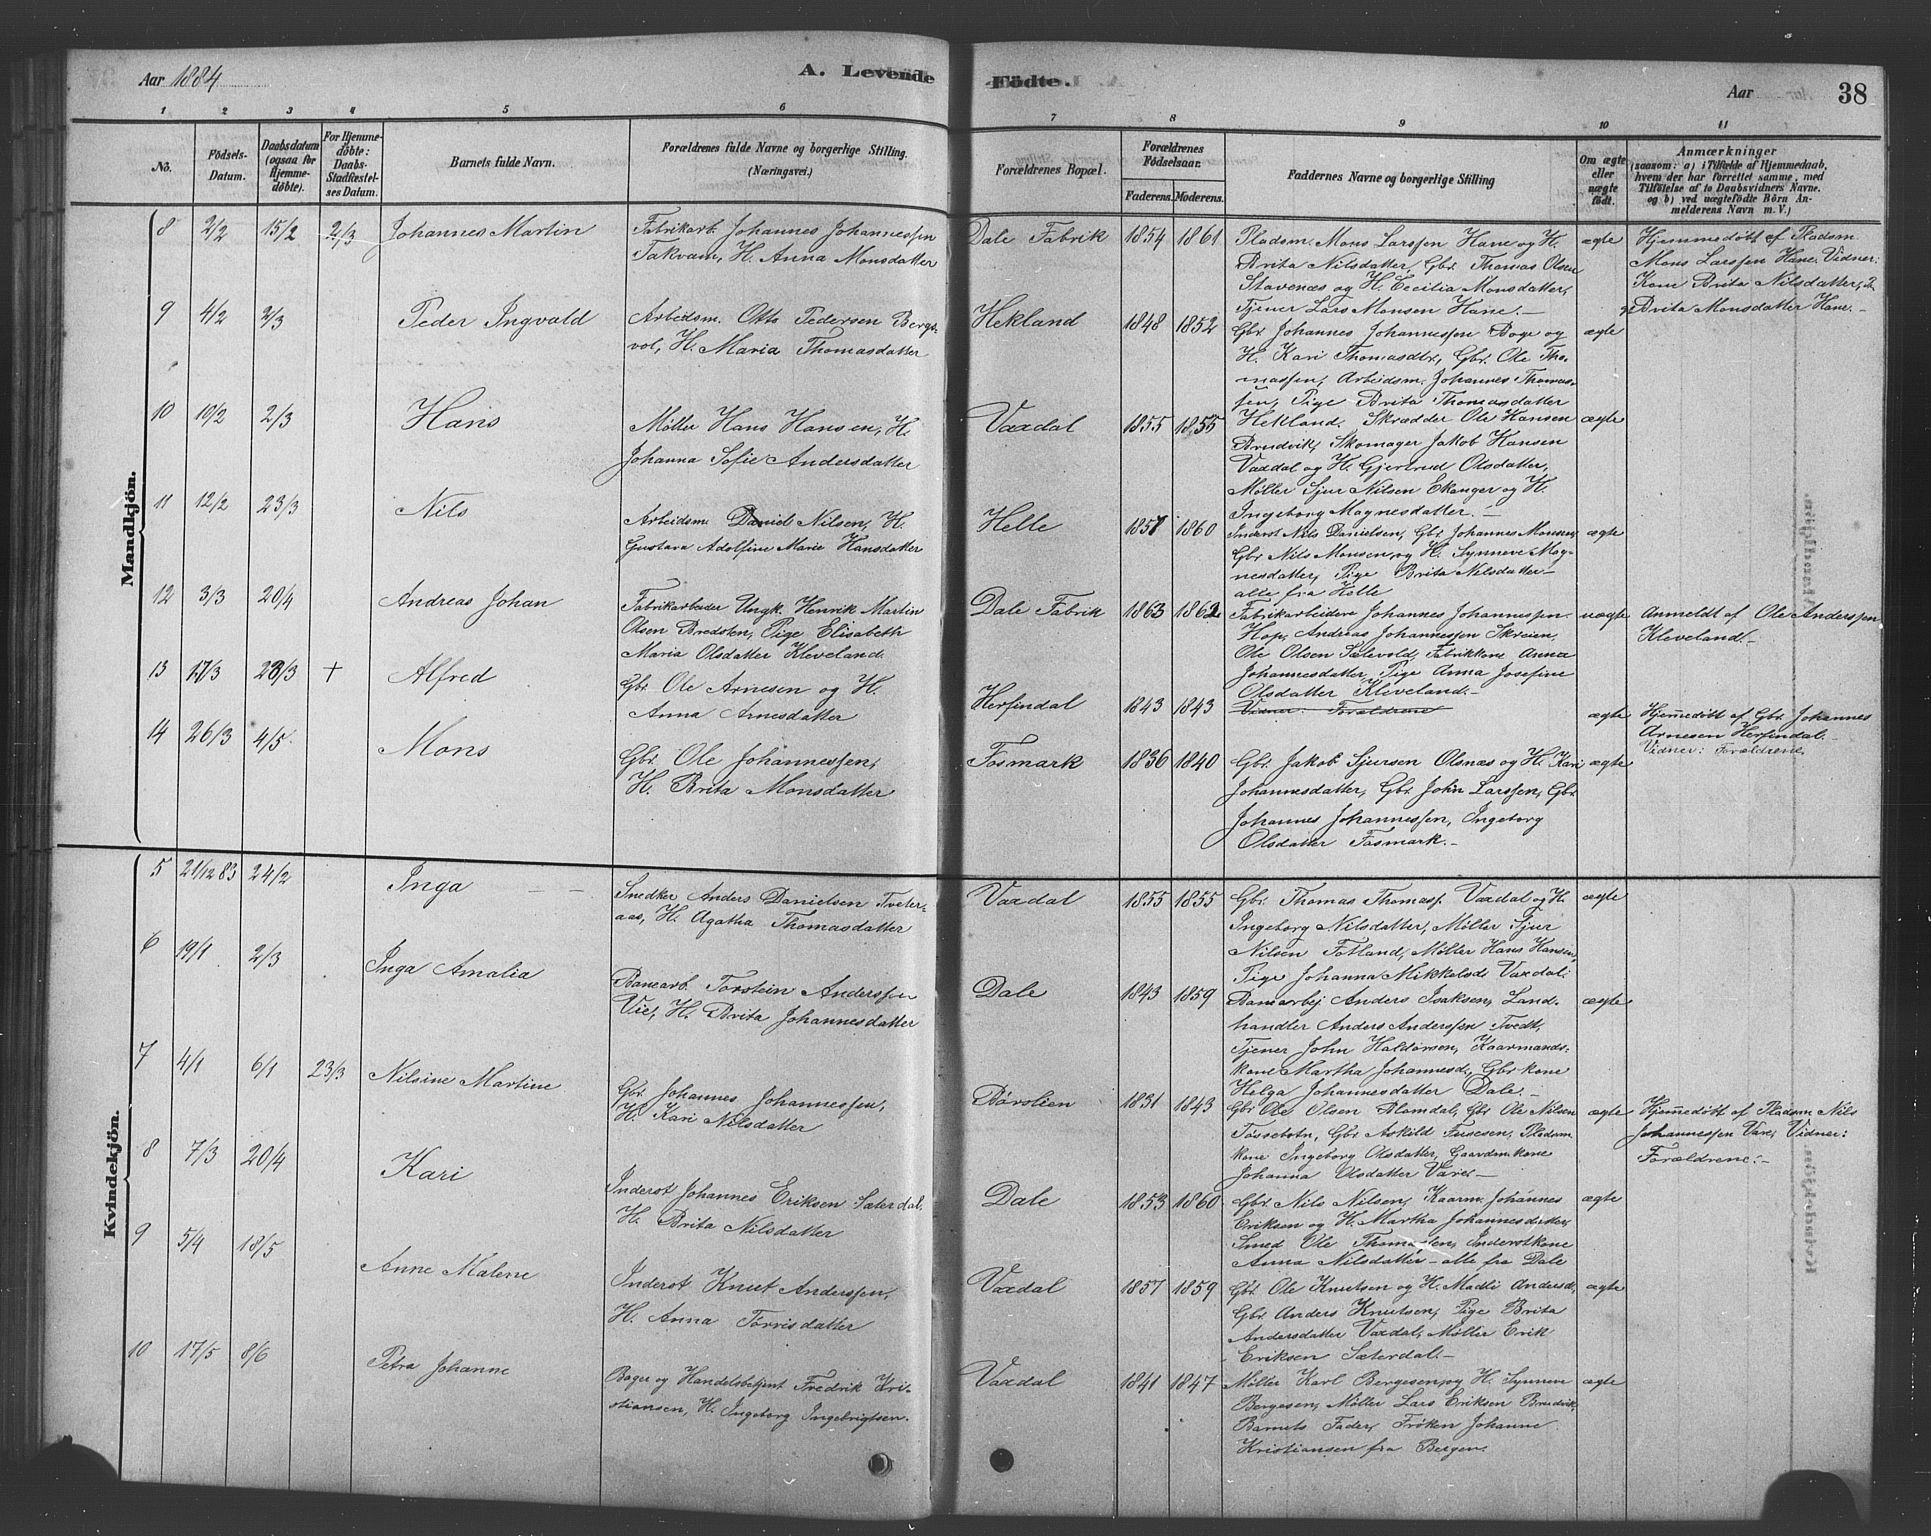 Aar 1884
A. Levende
Födte.
Aar
38
1 2 3 4 5 6 7 8 9 10 11
No.
Födsels-
Datum.
Daabsdatum
(ogsaa for
Hjemme-
döbte).
For Hjemme-
döbte:
Daabs-
Stadfæstel-
ses Datum.
Barnets fulde Navn.
Forældrenes fulde Navne og borgerlige Stilling.
(Næringsvei.)
Forældrenes Bopæl.
Forældrenes
Födselsaar.
Faderens. Moderens.
Faddernes Navne og borgerlige Stilling
Om ægte
eller
uægte
födt.
Anmærkninger
(saasom: a) i Tilfælde af Hjemmedaab,
hvem der har forrettet samme, med
Tilföielse af to Daabsvidners Navne.
og b) ved uægtefödte Börn An-
melderens Navn m. V.)
Mandkjön.
8 2/2 15/2 2/3 Johannes Martin
Fabrikarb. Johannes Johannessen
Takvam, H. Anna Monsdatter
Dale Fabrik 1854 1861
Pladsm. Mons Larssen Hane og H.
Brita Nilsdatter, Gbr. Thomas Olsen
Stavenæs og H. Cecilia Monsdatter,
Tjener Lars Monsen Hane.-
ægte
Hjemmedøbt af Pladsm.
Mons Larssen Hane. Vidner:
Kone Brita Nilsdatter,
Brita Monsdatter Hane.-
9 4/2 2/3 Peder Ingvald
Arbeidsm. Otto Pedersen Bergs-
vol, H. Maria Thomasdatter
Hekland 1848 1852
Gbr. Johannes Johannessen Boge og
H. Kari Thomasdtr, Gbr. Ole Tho-
massen, Arbeidsm. Johannes Thomas-
sen, Pige Brita Thomasdatter
Hekland.
ægte
10 10/2 2/3 Hans
Møller Hans Hansen, H.
Johanna Sofie Andersdatter
Vaxdal 1855 1855
Skrædder Ole Hansen
Brudvik, Skomager Jakob Hansen
Vaxdal og H. Gjertrud Olsdatter,
Møller Sjur Nilsen Ekanger og H.
Ingeborg Magnesdatter.-
ægte
11 12/2 23/3 Nils
Arbeidsm. Daniel Nilsen, H.
Gustava Adolfine Marie Hansdatter
Helle 1857 1860
Inderst Nils Danielsen, Gbr. Johannes Monsen,
Gbr. Nils Monsen og H. Synneve Mag-
nesdatter, Pige Brita Nilsdatter-
alle fra Helle
ægte
12 3/3 20/4 Andreas Johan
Fabrikarbeider Ungk. Henrik Martin
Olsen Bredsten, Pige Elisabeth
Maria Olsdatter Kleveland.
Dale Fabrik 1863 1862
Fabrikarbeidere Johannes Johannessen
Hop, Andreas Johannessen Skreien,
Ole Olsen Sælevold, Fabrikkone Anna
Johannesdatter, Pige Anna Josefine
Olsdatter Kleveland.-
uægte
Anmeldt af Ole Anderssen
Kleveland.-
13 17/3 23/3 + Alfred
Gbr. Ole Arnesen og H.
Anna Arnesdatter
Herfindal 1843 1843
Vidner: Forældrene
ægte
Hjemmedøbt af Gbr. Johannes
Arnesen Herfindal.-
Vidner: Forældrene
14 26/3 4/5 Mons
Gbr. Ole Johannessen,
H. Brita Monsdatter
Fosmark 1836 1840
Gbr. Jakob Sjursen Olsnæs og H. Kari
Johannesdatter, Gbr. John Larssen, Gbr.
Johannes Johannessen, Ingeborg
Olsdatter Fosmark.-
ægte
Kvindekjön.
5 21/12 83 24/2 Inga
Snedker Anders Danielsen Tveter-
aas, H. Agatha Thomasdatter
Vaxdal 1855 1855
Gbr. Thomas Thomass. Vaxdal og H.
Ingeborg Nilsdatter, Møller Sjur
Nilsen Fotland, Møller Hans Hansen,
Pige Johanna Mikkelsd. Vaxdal.
ægte
6 19/1 2/3 Inga Amalia
Banearb. Torstein Anderssen
Vie, H. Brita Johannesdatter
Dale 1843 1859
Banearbej Anders Isaksen, Land-
handler Anders Anderssen Tvedt,
Tjener John Haldorsen, Kaarmands-
kone Martha Johannesd., Gbr. kone
Helga Johannesdatter Dale.-
ægte
7 4/1 6/1 23/3 Nilsine Martine
Gbr. Johannes Johannessen,
H. Kari Nilsdatter
Børslien 1831 1843
Gbr. Ole Olsen Blomdal, Gbr. Ole Nilsen
Tossebotn, Gbr. Askild Fusesen, Pladsm.
kone Ingeborg Olsdatter, Gaardm.kone
Johanna Olsdatter Vare.-
ægte
Hjemmedøbt af Pladsm. Nils
Johannessen Vare, Vidner:
Forældrene.-
8 7/3 20/4 Kari
Inderst Johannes Eriksen Sæterdal,
H. Brita Nilsdatter
Dale 1853 1860
Gbr. Nils Nilsen, Kaarm. Johannes
Eriksen og H. Martha Johannesdatter,
Smed Ole Thomassen, Inderstkone
Anna Nilsdatter - alle fra Dale
ægte
9 5/4 18/5 Anne Malene
Inderst Knut Anderssen,
H. Anna Torrisdatter
Vaxdal 1857 1859
Gbr. Ole Knutsen og H. Madli Andersd.,
Gbr. Anders Knutsen, Pige Brita
Andersdatter Vaxdal, Møller Erik
Eriksen Sæterdal.-
ægte
10 17/5 8/6 Petra Johanne
Bager og Handelsbetjent Fredrik Kri-
stiansen, H. Ingeborg Ingebrigtsen.
Vaxdal 1841 1847
Møller Karl Bergesen og H. Synneve
Bergesen, Møller Lars Eriksen Brudvik,
Barnets Fader, Frøken Johanne
Kristiansen fra Bergen.
ægte